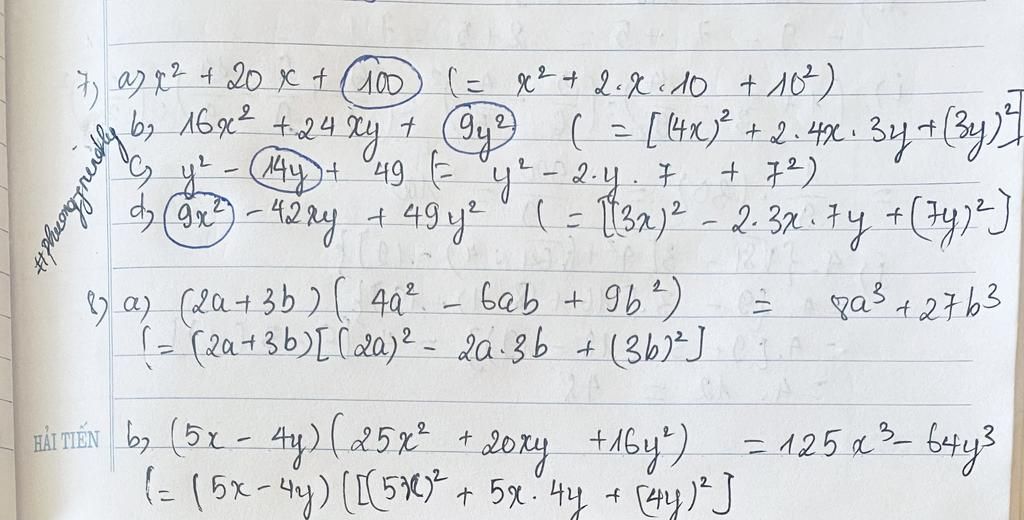 7) a) x² + 20x + 100 (= x² + 2.x.10 + 10²)
b) 16x² + 24xy + 9y² ( = [(4x)² + 2.4x.3y + (3y)²]
c) y² - 14y + 49 (= y² - 2.y.7 + 7²)
d) 9x² - 42xy + 49y² ( = [(3x)² - 2.3x.7y + (7y)²]
8) a) (2a + 3b)(4a² - 6ab + 9b²) = 8a³ + 27b³
(= (2a+3b)[(2a)² - 2a.3b + (3b)²]
HẢI TIẾN
b) (5x - 4y)(25x² + 20xy + 16y²) = 125x³ - 64y³
(= (5x-4y)([(5x)² + 5x.4y + (4y)²]